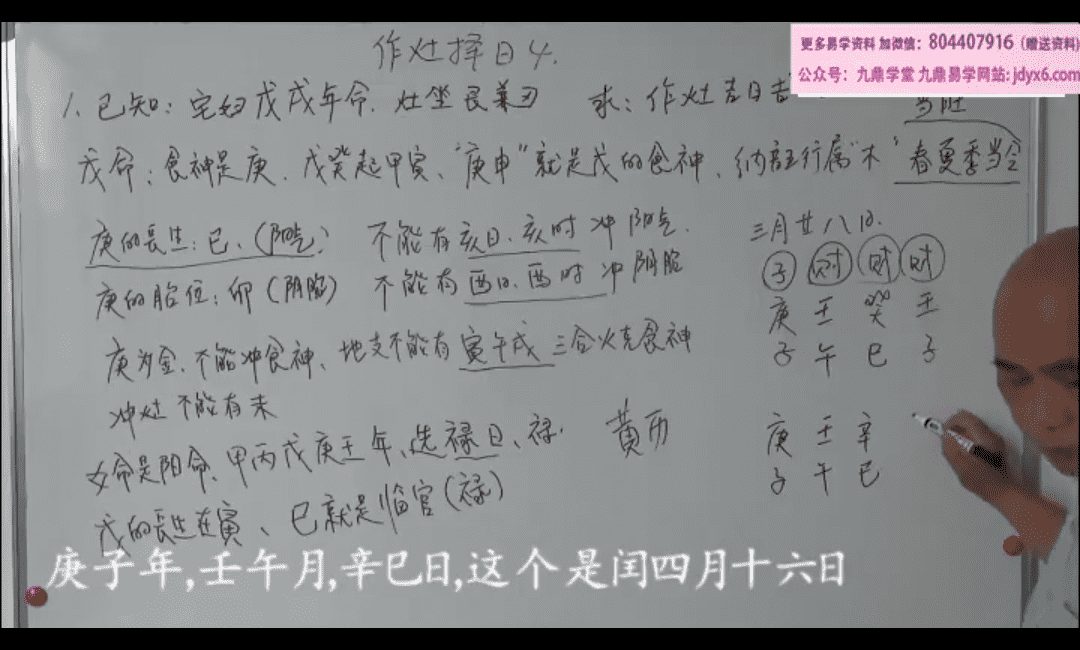 更多易学资料 加微信：804407916（赠送资料）
公众号：九鼎学堂 九鼎易学网站：jdyx6.com
作灶择日4.
1. 已知：宅妇戊戌年命. 灶坐艮兼丑 求：作灶吉日吉
戊命：食神是庚. 戊癸起甲寅、“庚申”就是戊的食神、纳音五行属“木”春夏季当令
当旺
庚的長生：巳、（阳气） 不能有亥日、亥时 冲阳气.
庚的胎位：卯（阴胎） 不能有酉日、酉时 冲阴胎
庚为金、不能冲食神、地支不能有寅午戌三合火克食神
冲灶 不能有未
女命是阳命、甲丙戊庚壬年、选禄日、禄.
戊的長生在寅、巳就是临官（禄）
黄历
三月廿八日.
子 财 财 财
庚 壬 癸 壬
子 午 巳 子
庚 壬 辛
子 午 巳
庚子年,壬午月,辛巳日,这个是闰四月十六日